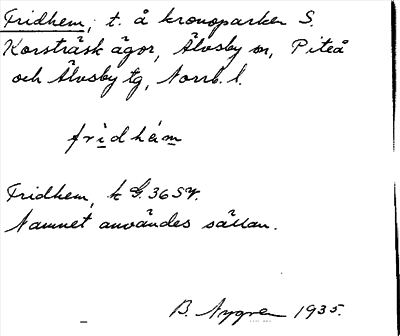 Fridhem, t. å kronoparken S.
Korsträsk ägor, Älvsby sn, Piteå
och Älvsby tg, Norrb. l.
fridhém
Fridhem, k G. 36 SV.
Namnet användes sällan.
B. Nygren 1935.